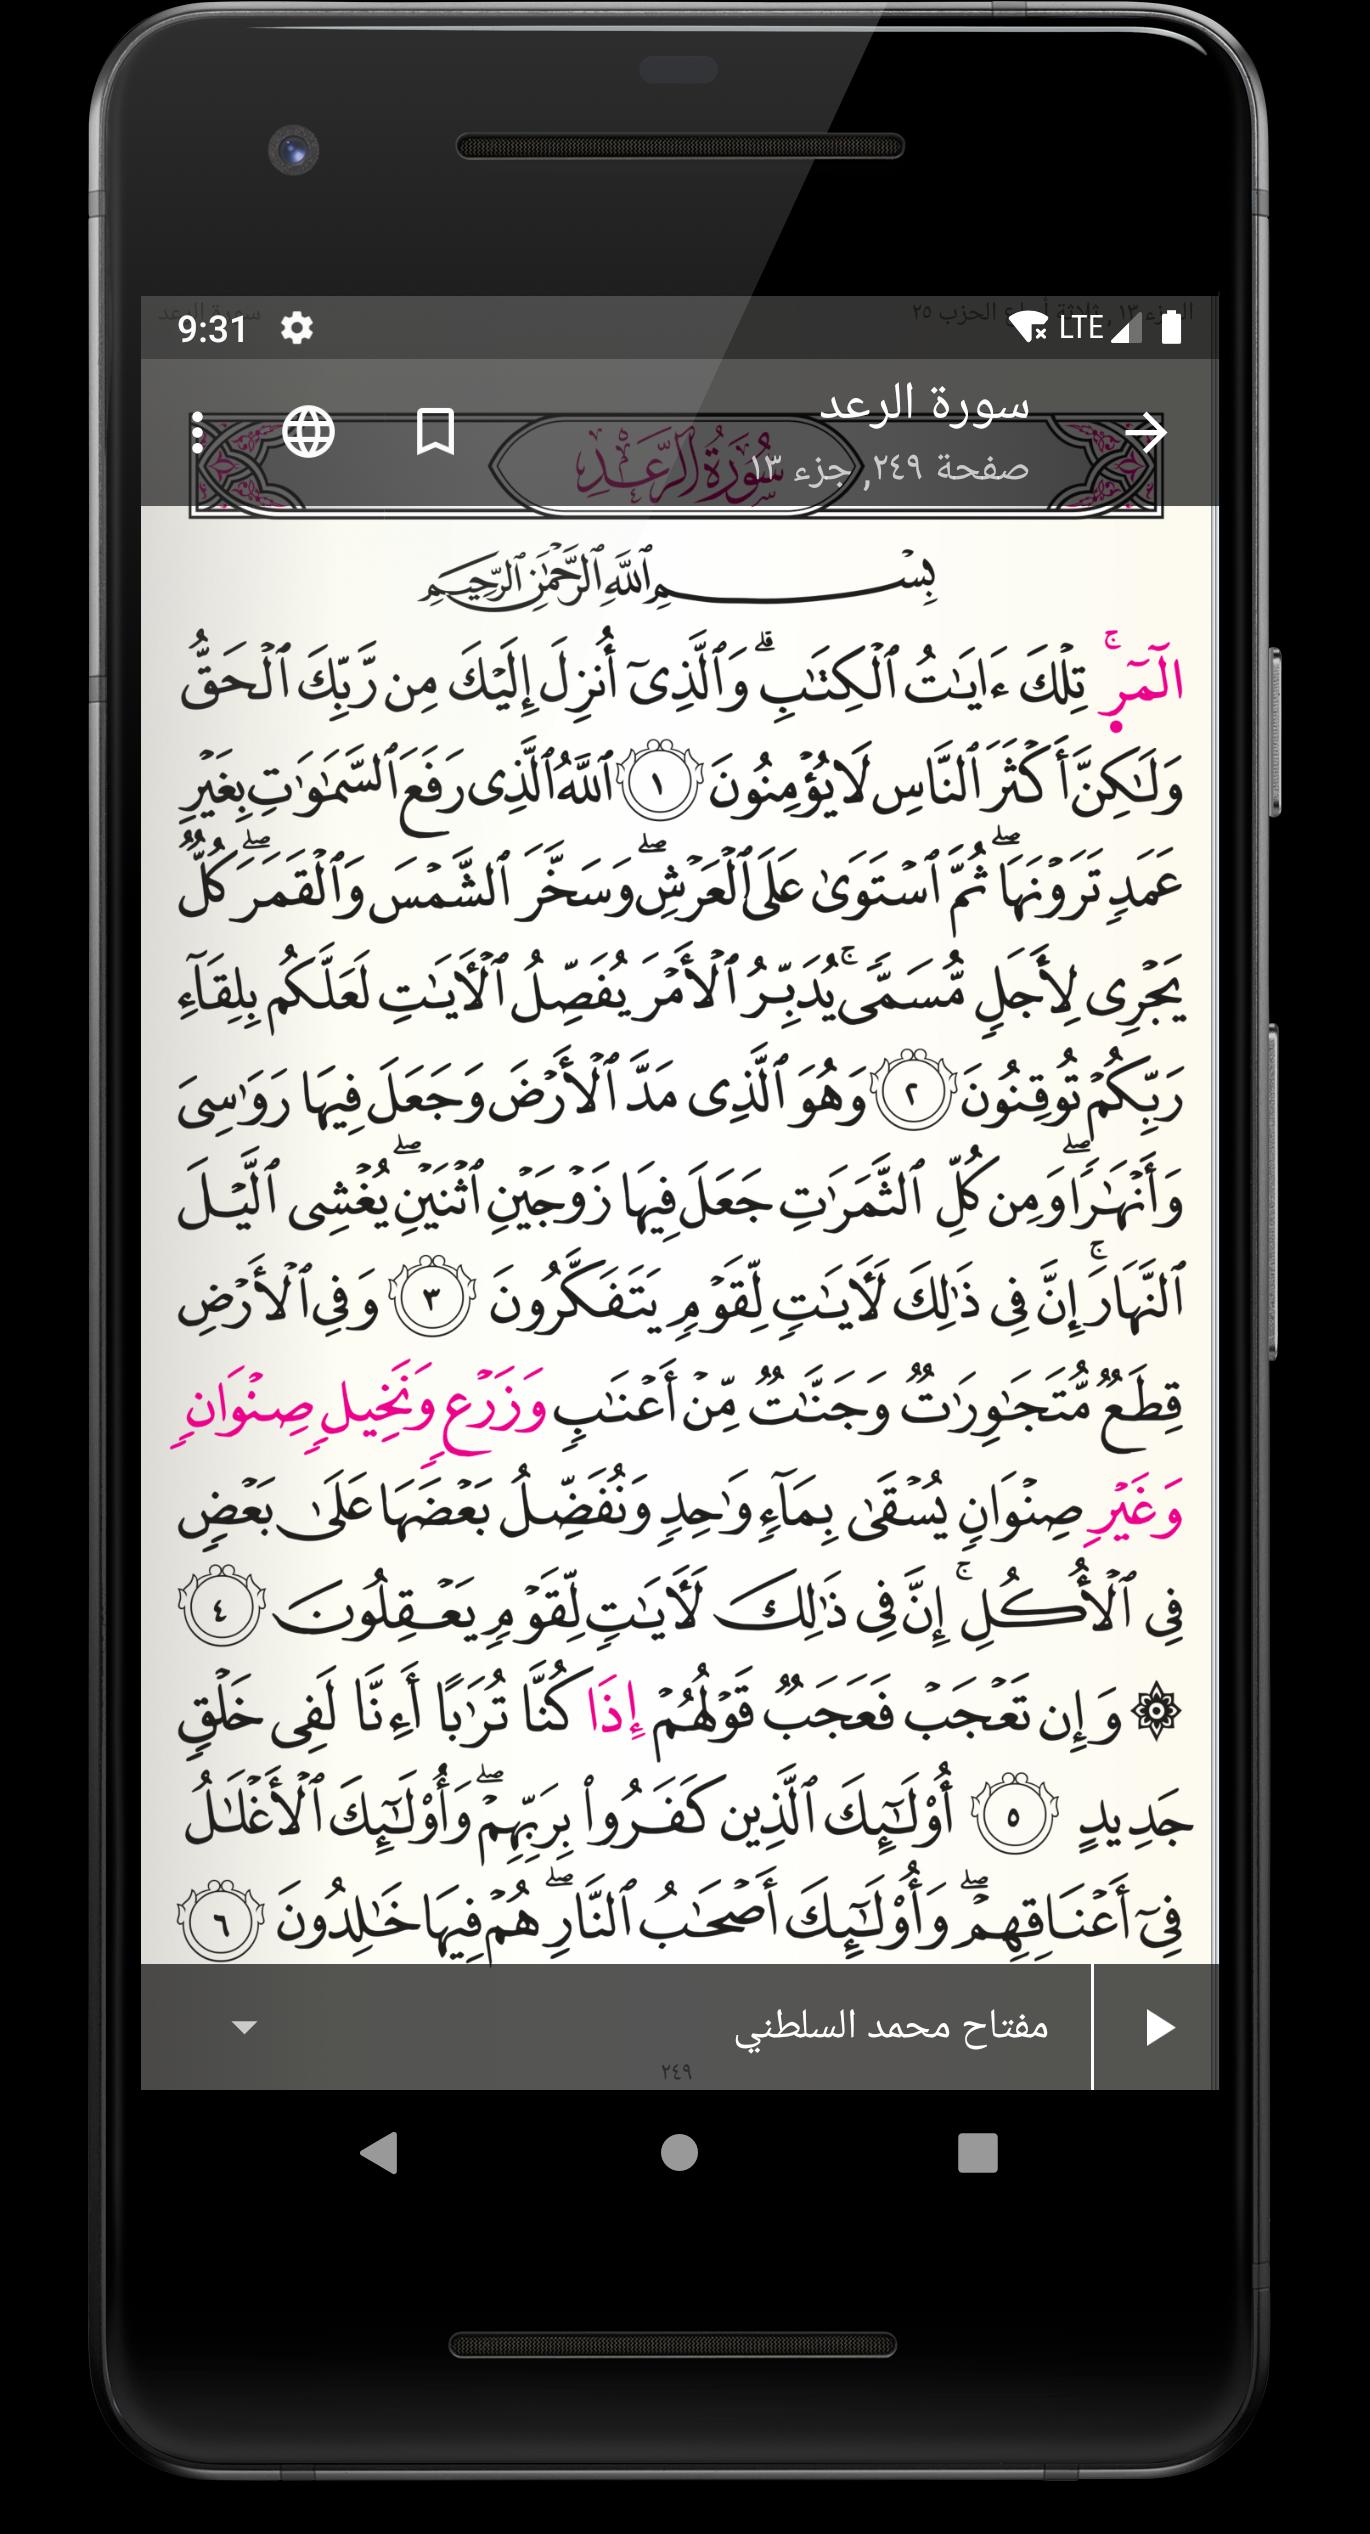 سورة الرعد الجزء ١٣, ثلاثة أرباع الحزب ٢٥
9:31 LTE
سورة الرعد
صفحة ٢٤٩, جزء ١٣
سُورَةُ الرَّعْدِ
بِسْمِ ٱللَّهِ ٱلرَّحْمَٰنِ ٱلرَّحِيمِ
الٓمٓرۚ تِلْكَ ءَايَٰتُ ٱلْكِتَٰبِۗ وَٱلَّذِىٓ أُنزِلَ إِلَيْكَ مِن رَّبِّكَ ٱلْحَقُّ
وَلَٰكِنَّ أَكْثَرَ ٱلنَّاسِ لَا يُؤْمِنُونَ ١ ٱللَّهُ ٱلَّذِى رَفَعَ ٱلسَّمَٰوَٰتِ بِغَيْرِ
عَمَدٍ تَرَوْنَهَاۖ ثُمَّ ٱسْتَوَىٰ عَلَى ٱلْعَرْشِۖ وَسَخَّرَ ٱلشَّمْسَ وَٱلْقَمَرَۖ كُلٌّ
يَجْرِى لِأَجَلٍ مُّسَمًّىۚ يُدَبِّرُ ٱلْأَمْرَ يُفَصِّلُ ٱلْأٓيَٰتِ لَعَلَّكُم بِلِقَآءِ
رَبِّكُمْ تُوقِنُونَ ٢ وَهُوَ ٱلَّذِى مَدَّ ٱلْأَرْضَ وَجَعَلَ فِيهَا رَوَٰسِىَ
وَأَنْهَٰرًاۖ وَمِن كُلِّ ٱلثَّمَرَٰتِ جَعَلَ فِيهَا زَوْجَيْنِ ٱثْنَيْنِۖ يُغْشِى ٱلَّيْلَ
ٱلنَّهَارَۚ إِنَّ فِى ذَٰلِكَ لَأٓيَٰتٍ لِّقَوْمٍ يَتَفَكَّرُونَ ٣ وَفِى ٱلْأَرْضِ
قِطَعٌ مُّتَجَٰوِرَٰتٌ وَجَنَّٰتٌ مِّنْ أَعْنَٰبٍ وَزَرْعٍ وَنَخِيلٍ صِنْوَانٍ
وَغَيْرِ صِنْوَانٍ يُسْقَىٰ بِمَآءٍ وَٰحِدٍ وَنُفَضِّلُ بَعْضَهَا عَلَىٰ بَعْضٍ
فِى ٱلْأُكُلِۚ إِنَّ فِى ذَٰلِكَ لَأٓيَٰتٍ لِّقَوْمٍ يَعْقِلُونَ ٤
۞ وَإِن تَعْجَبْ فَعَجَبٌ قَوْلُهُمْ إِذَا كُنَّا تُرَٰبًا أَءِنَّا لَفِى خَلْقٍ
جَدِيدٍ ٥ أُوْلَٰٓئِكَ ٱلَّذِينَ كَفَرُواْ بِرَبِّهِمْۖ وَأُوْلَٰٓئِكَ ٱلْأَغْلَٰلُ
فِىٓ أَعْنَاقِهِمْۖ وَأُوْلَٰٓئِكَ أَصْحَٰبُ ٱلنَّارِۖ هُمْ فِيهَا خَٰلِدُونَ ٦
مفتاح محمد السلطني
٢٤٩